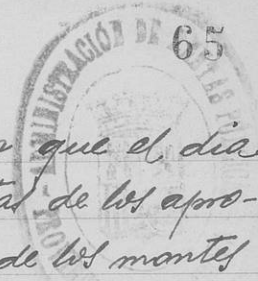 65
ADMINISTRACIÓN DE
que el dia
de los apro-
de los montes